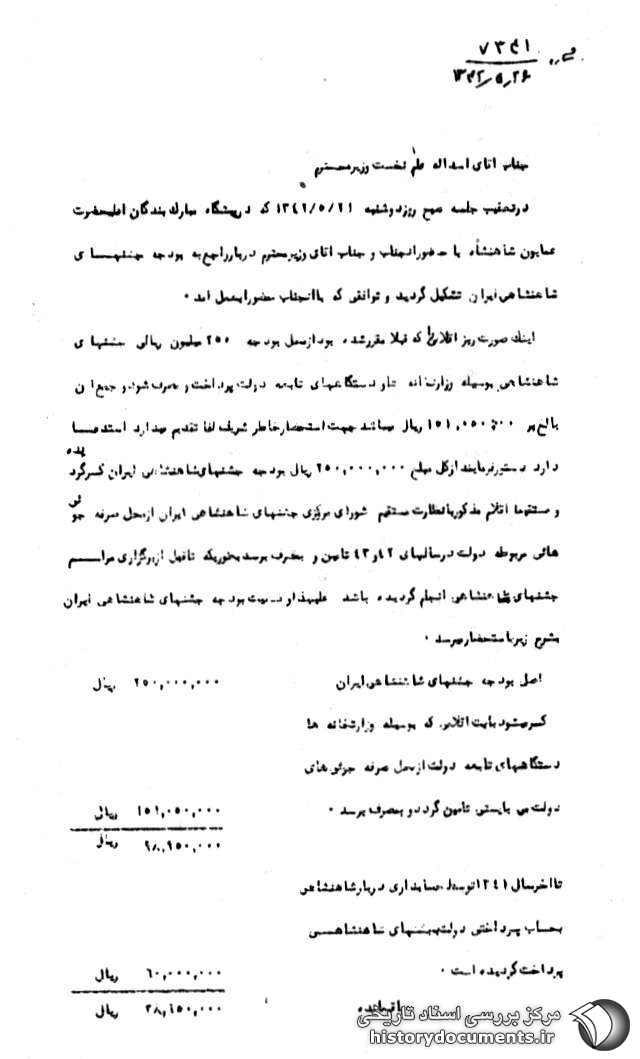 ۷۳۴۱
۱۳۴۲/۵/۲۶
جناب اقای اسداله علم نخست وزیر محترم
در تعقیب جلسه صبح روز دوشنبه ۱۳۴۲/۵/۲۱ که در پیشگاه مبارک بندگان اعلیحضرت
همایون شاهنشاه با حضور انجناب و جناب اقای وزیر محترم دربار راجع به بودجه جشنهای
شاهنشاهی ایران تشکیل گردید و توافقی که با انجناب حضورا بعمل امد ۰
اینک صورت ریز اقلامی را که قبلا مقرر شده بود از محل بودجه ۲۵۰ میلیون ریالی جشنهای
شاهنشاهی بوسیله وزارتخانه ها و دستگاههای تابعه دولت پرداخت و بمصرف شود و جمع ان
بالغ بر ۱۵۱,۰۵۰,۰۰۰ ریال میباشد جهت استحضار خاطر شریف لفا تقدیم میدارد استدعا
دارد دستور فرمایند از کل مبلغ ۲۵۰,۰۰۰,۰۰۰ ریال بودجه جشنهای شاهنشاهی ایران کسر گردیده
و مستقیما اقلام مذکور با نظارت مستقیم شورای مرکزی جشنهای شاهنشاهی ایران از محل صرفه جوئی
هائی مربوطه دولت در سالهای ۴۲ و ۴۳ تامین و بمصرف برسد بطوریکه تا قبل از برگزاری مراسم
جشنهای شاهنشاهی انجام گردیده باشد علیهذا وضعیت بودجه جشنهای شاهنشاهی ایران
بشرح زیر باستحضار میرسد ۰
اصل بودجه جشنهای شاهنشاهی ایران ۲۵۰,۰۰۰,۰۰۰ ریال
کسر میشود بابت اقلامی که بوسیله وزارتخانه ها
دستگاههای تابعه دولت از محل صرفه جوئی های
دولت می بایستی تامین گردد و بمصرف برسد ۰ ۱۵۱,۰۵۰,۰۰۰ ریال
۹۸,۹۵۰,۰۰۰ ریال
تا اخر سال ۱۳۴۱ توسط حسابداری دربار شاهنشاهی
بحساب پرداختی دولت بجشنهای شاهنشاهی
پرداخت گردیده است ۰ ۶۰,۰۰۰,۰۰۰ ریال
باقیمانده ۳۸,۹۵۰,۰۰۰ ریال
مرکز بررسی اسناد تاریخی
historydocuments.ir